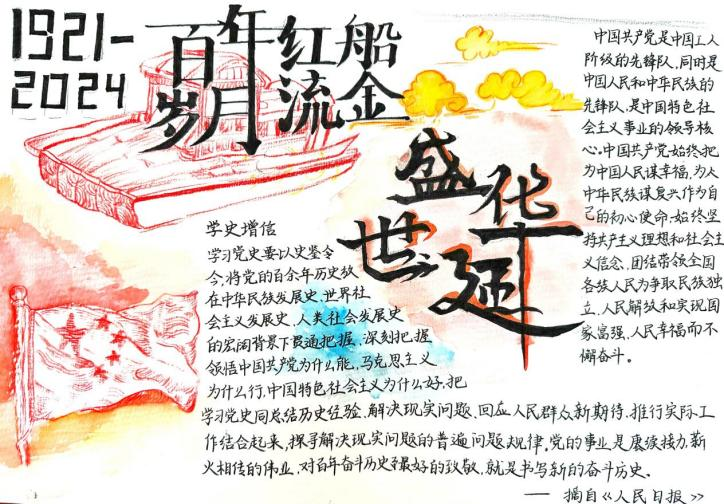 1921-
2024
百年红船
岁月流金
盛世华延
中国共产党是中国工人
阶级的先锋队,同时是
中国人民和中华民族的
先锋队,是中国特色社
会主义事业的领导核
心.中国共产党始终把
为中国人民谋幸福,为人
中华民族谋复兴作为自
己的初心使命,始终坚
持共产主义理想和社会主
义信念,团结带领全国
各族人民为争取民族独
立,人民解放和实现国
家富强,人民幸福而不
懈奋斗。
学史增信
学习党史要以史鉴今
今,将党的百余年历史放
在中华民族发展史,世界社
会主义发展史,人类社会发展史
的宏阔背景下贯通把握,深刻把握
领悟中国共产党为什么能,马克思主义
为什么行,中国特色社会主义为什么好,把
学习党史同总结历史经验,解决现实问题,回应人民群众新期待,推行实际工
作结合起来,探寻解决现实问题的普遍问题规律。党的事业是赓续接力,薪
火相传的伟业,对百年奋斗历史最好的致敬,就是书写新的奋斗历史。
——摘自《人民日报》